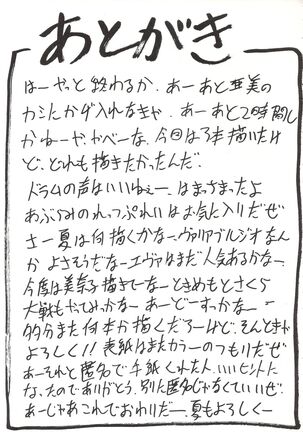 あとがき
はーやっと終わるか、あーあと亜美の
カシにカゲ入れなきゃ、あーあと2時間し
かねーや、かべーな、今回は3本描いたけ
ど、どれも描きたかったんだ、
ドラムの声はいいねぇー はまっさまったよ
あぶらみのれっぷれいはお気に入りだぜ
さー夏は何描くかなーヴァリアブルジオなん
かよさそうだなーエヴァはまだ人気あるかなー、
今度は美奈子描きてーなーときめもとさくら
大戦もやってみっかなー あーどーすっかなー
多分また何本か描くだろーけど、そんときゃ
よろしく!! 表紙はまたカラーのつもりだぜ
あーそれと匿名で手紙くれた人、いいヒントに
なったのでありがとう、別に匿名じゃなくていいぜ、
あーじゃあこれでおわりだー、夏もよろしくー